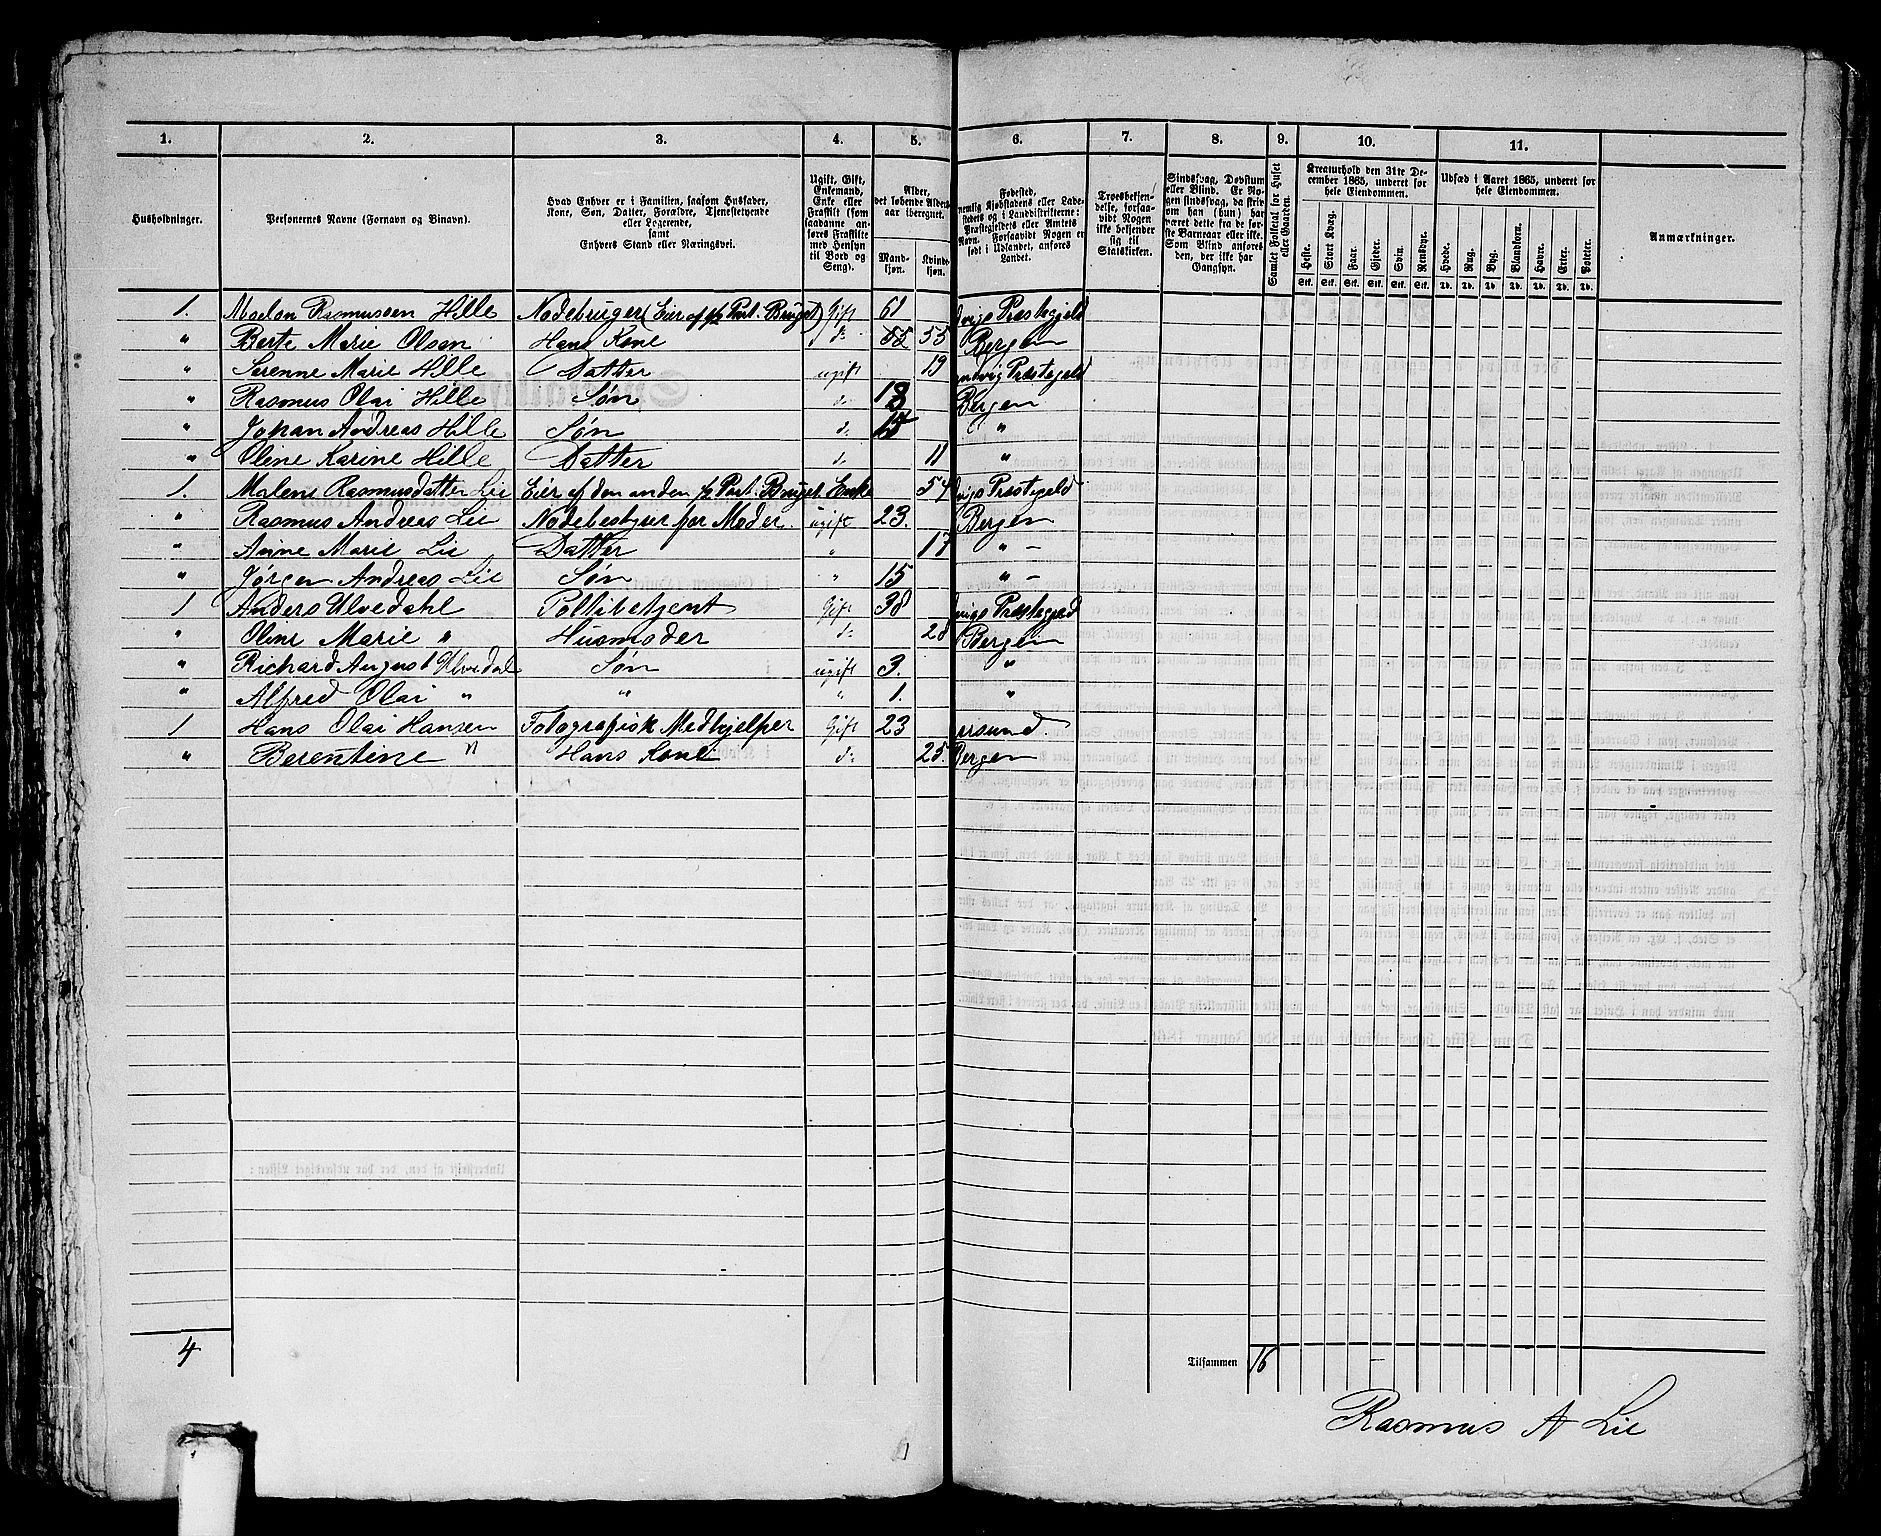 1. 2. 3. 4. 5. 6. 7. 8. 9. 10. 11.
Husholdninger. Personernes Navne (Fornavn og Binavn). Hvad Enhver er i Familien, saasom Husfader, Kone, Søn, Datter, Forældre, Tjenestetyende eller Logerende, samt Enhvers Stand eller Næringsvei. Ugift, Gift, Enkemand, Enke eller Fraskilt (som saadanne anføres Fraskilte med Hensyn til Bord og Seng). Alder, det løbende Alders-aar iberegnet. Mandkjøn. Kvindekjøn. Fødested, nemlig Kjøbstadens eller Ladestedets og i Landdistrikterne: Præstegjeldets eller Amtets Navn. Forsaavidt Nogen er født i Udlandet, anføres Landet. Troesbekjendelse, forsaavidt Nogen ikke bekjender sig til Statskirken. Sindssvag, Døvstum eller Blind. Er Nogen sindssvag, da skriv om han (hun) har været dette fra de første Barneaar eller ikke. Som Blind anføres den, der ikke har Gangsyn. Samlet Folketal for Huset eller Gaarden. Kreaturhold den 31te December 1865, underet for hele Eiendommen. Udsæd i Aaret 1865, underet for hele Eiendommen. Anmærkninger.
Heste. Stort Kvæg. Faar. Gjeder. Svin. Rensdyr. Hvede. Rug. Byg. Blandkorn. Havre. Erter. Poteter.
Stk. Stk. Stk. Stk. Stk. Stk. Td. Td. Td. Td. Td. Td. Td.
1. Rasmussen Hille Nodebruger (Eier af ½ Part. Bruget) Gift 61 vigs Præstegjeld
" Berte Marie Olsen Hans Kone do 55 55 Bergen
" Serenne Marie Hille Datter ugift 19 Præstegjeld
" Rasmus Olai Hille Søn do 18 Bergen
" Johan Andreas Hille Søn do 15 "
" Oline Karine Hille Datter do 11 "
1. Malene Rasmusdatter Lie Eier af den anden ½ Part. Bruget. Enke 54 vigs Præstegjeld
" Rasmus Andreas Lie Nodebestyrer for Moder. ugift 23. Bergen
" Anne Marie Lie Datter " 17 " -
" Jørgen Andreas Lie Søn " 15 " -
1 Anders Ulvedahl Politibetjent Gift 38 vigs
" Oline Marie " Husmoder do 28 Bergen
" Richard August Ulvedal Søn ugift 3. "
" Alfred Olai " " " 1. "
1 Hans Olai Hansen Fotografisk Medhjelper Gift 23 ersund.
" Berentine " Hans Kone do 25. Bergen
4 Tilsammen 16 -
Rasmus A Lie